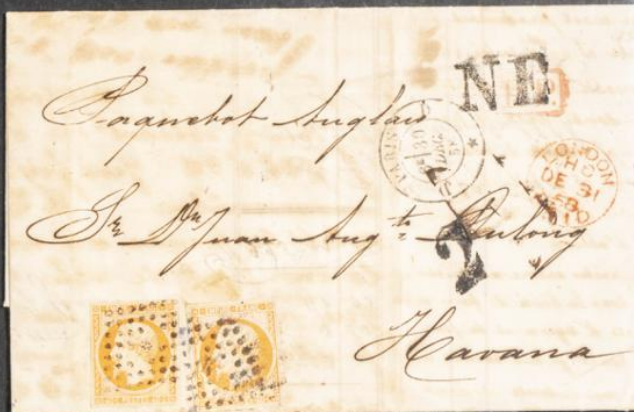 NE
Paquebot Anglais
PARIS
30
DEC.
58
LONDON
DE 31
58
Sr. Dn. Juan Aug.to
2
Havana